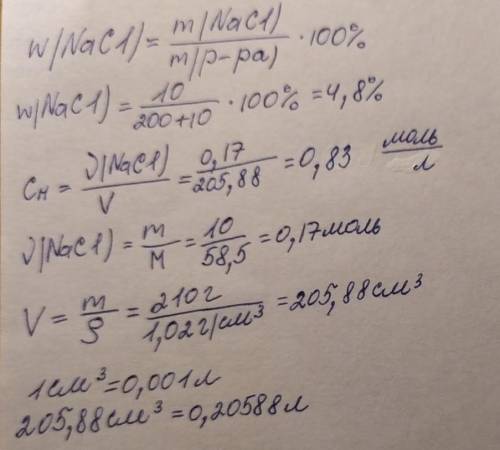 w(NaCl) = m(NaCl) / m(р-ра) · 100%
w(NaCl) = 10 / 200+10 · 100% = 4,8%
Cм = ν(NaCl) / V = 0,17 / 205,88 = 0,83 моль / л
ν(NaCl) = m / M = 10 / 58,5 = 0,17 моль
V = m / ρ = 210 г / 1,02 г/см³ = 205,88 см³
1 см³ = 0,001 л
205,88 см³ = 0,20588 л